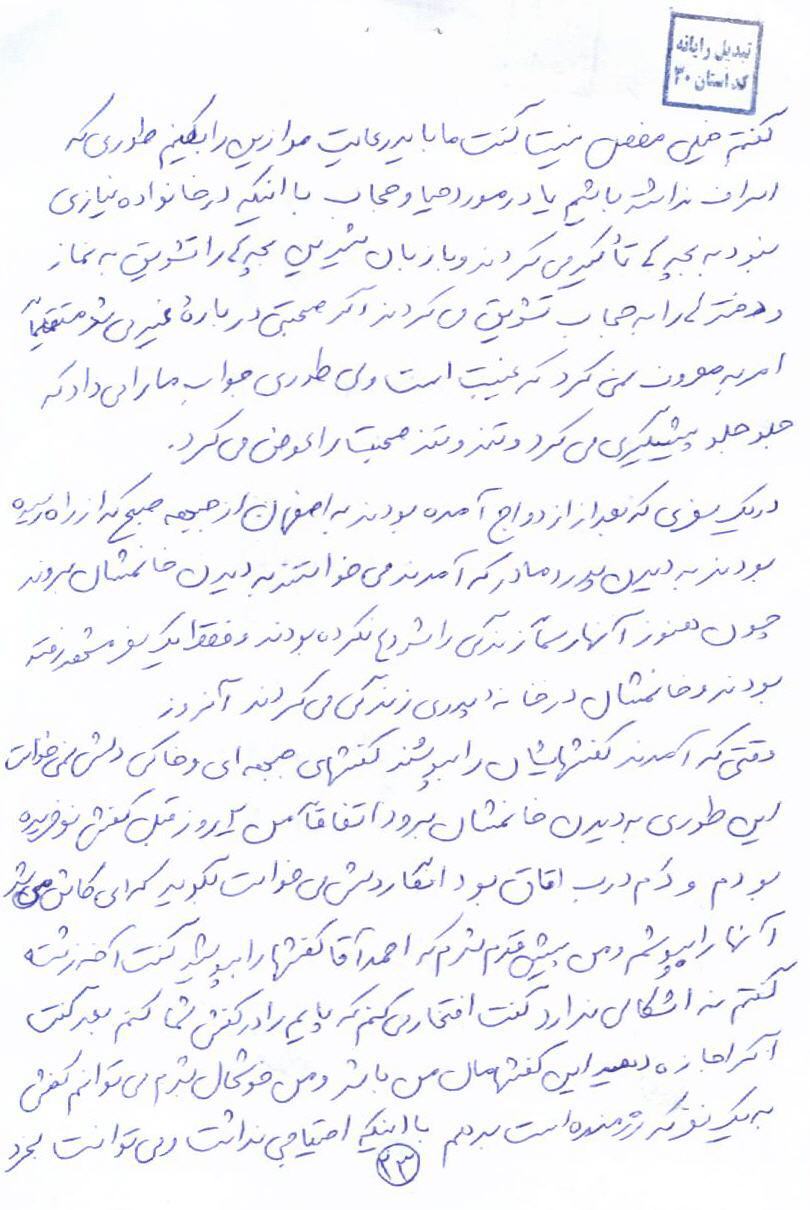 تبدیل رایانه
کد استان ۳۰
گفتم خیلی مفصل نیست گفت ما باید رعایت موازین را بکنیم طوری که
اسراف نداشته باشیم یا در مورد حیا و حجاب با اینکه در خانواده نیازی
نبود به بچه ها تأکید می کردند و با زبان شیرین بچه ها را تشویق به نماز
و دختر ها را به حجاب تشویق می کردند اگر صحبتی درباره غیر می شد مستقیماً
امر به معروف نمی کرد که غیبت است ولی طوری جواب ما را می داد که
جلو جلو پیشگیری می کرد و تند و تند صحبت را عوض می کرد.
در یک سفری که بعد از ازدواج آمده بودند به اصفهان از جبهه صبح که از راه رسیده
بودند به دیدن پدر و مادر که آمدند می خواستند به دیدن خانمشان بروند
چون هنوز آنها رسماً زندگی را شروع نکرده بودند و فقط یک سفر مشهد رفته
بودند و خانمشان در خانه پدری زندگی می کردند آنروز
وقتی که آمدند کفشهایشان را بپوشند کفشهای جبهه ای و خاکی دلش نمی خواست
این طوری به دیدن خانمشان برود اتفاقاً من روز قبل کفش نو خریده
بودم و دم درب اتاق بود انگار دلش می خواست بگوید که ای کاش می شد
آنها را بپوشم و من پیش قدم شدم که احمد آقا کفشها را بپوشید گفت آخه زشته
گفتم نه اشکالی ندارد گفت افتخار می کنم که پایم را در کفش شما کنم بعد گفت
اگر اجازه دهید این کفشها مال من باشد و من خوشحال شدم می توانم کفش
به یک نفر که رزمنده است بدهم با اینکه احتیاجی نداشت و می توانست بخرد
۲۳